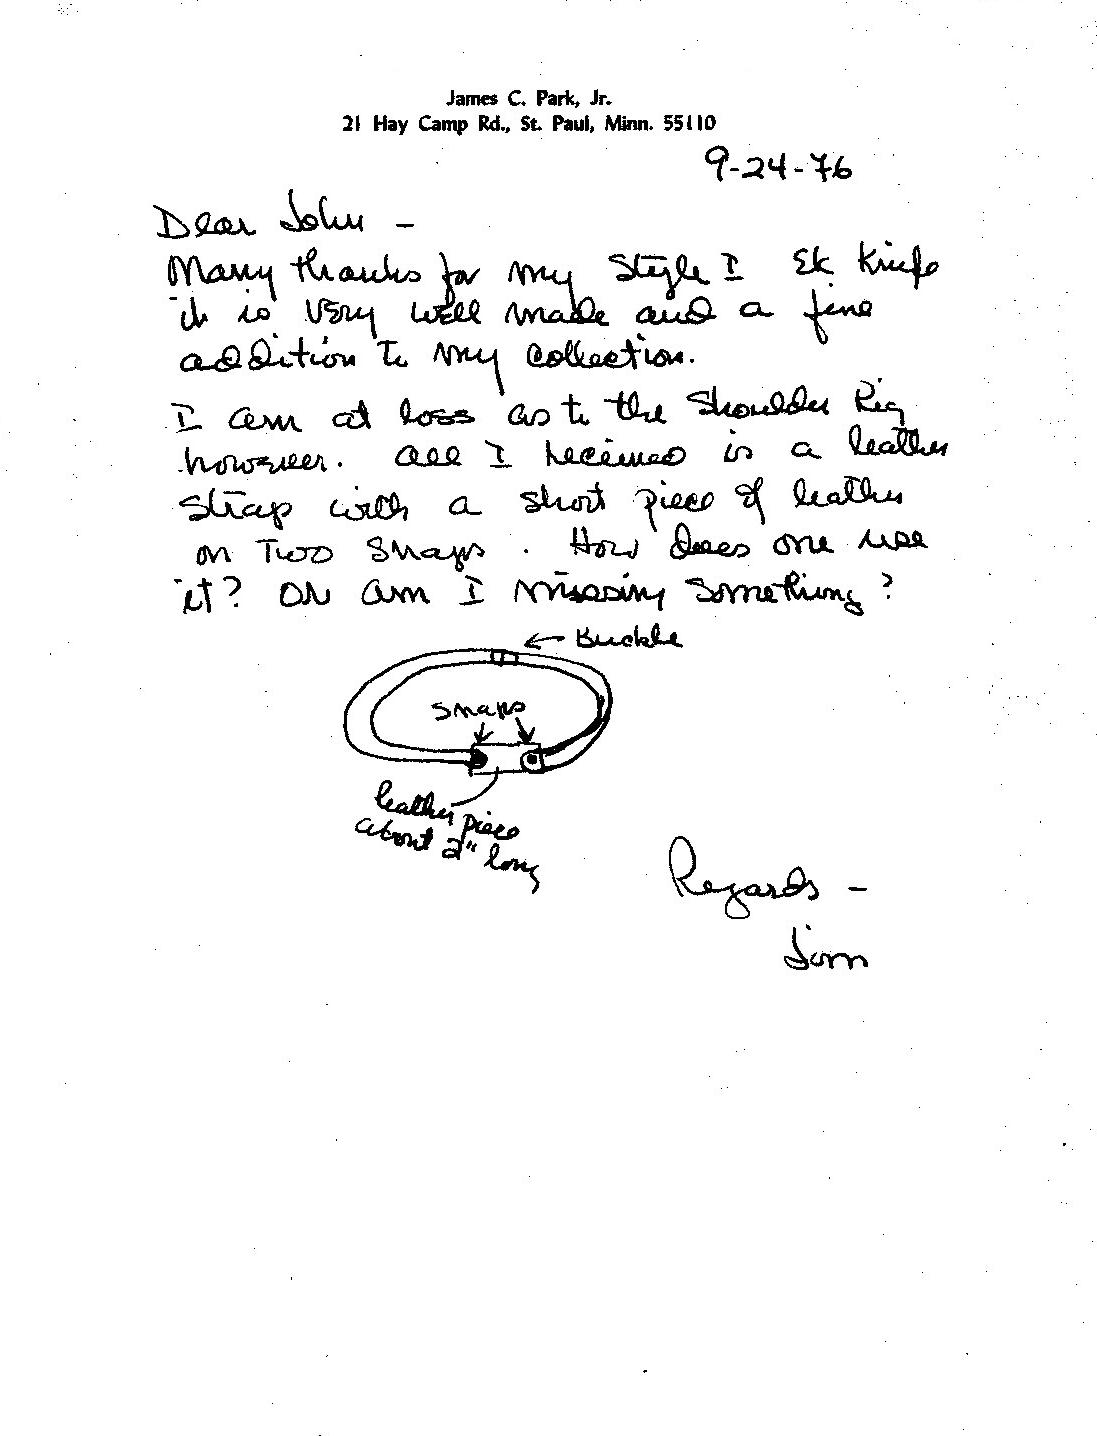 James C. Park, Jr.
21 Hay Camp Rd., St. Paul, Minn. 55110
9-24-76
Dear John -
Many thanks for my Style I Ek Knife
it is very well made and a fine
addition to my collection.
I am at loss as to the Shoulder Rig
however. all I received is a leather
strap with a short piece of leather
on Two Snaps. How does one use
it? OR am I missing something?
← Buckle
snaps
leather piece
about 2" long
Regards -
Jim